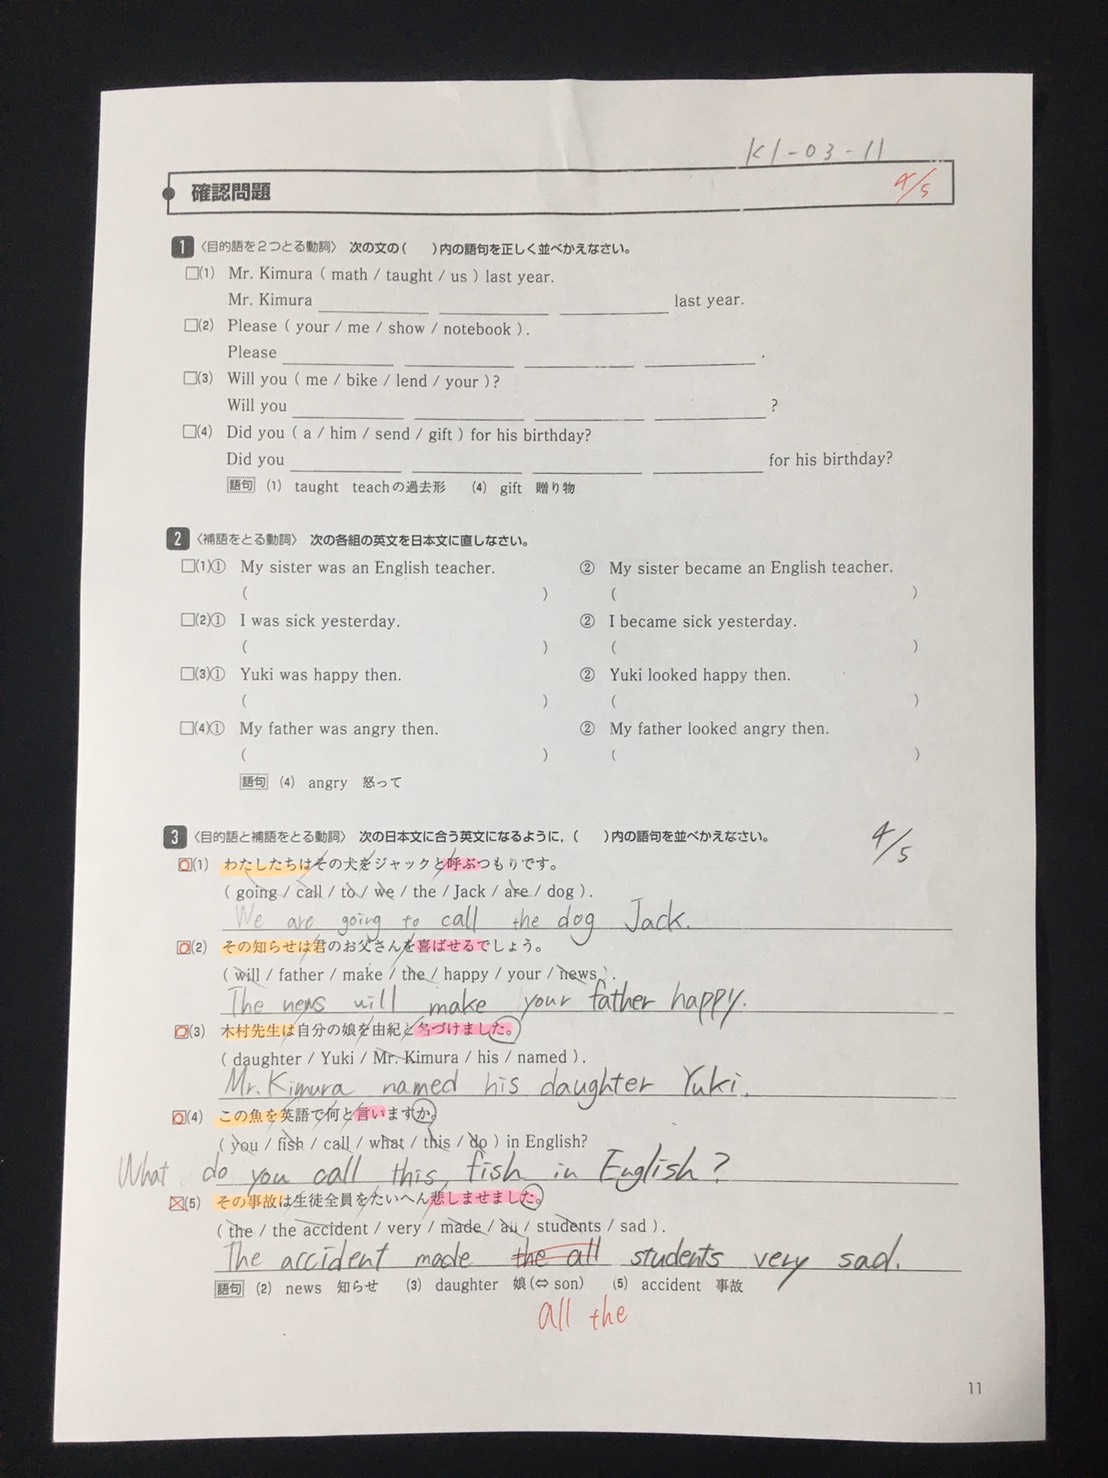 K1-03-11
確認問題
4/5
1 〈目的語を2つとる動詞〉 次の文の( )内の語句を正しく並べかえなさい。
□(1) Mr. Kimura ( math / taught / us ) last year.
Mr. Kimura ______ ______ ______ last year.
□(2) Please ( your / me / show / notebook ).
Please ______ ______ ______ ______ .
□(3) Will you ( me / bike / lend / your )?
Will you ______ ______ ______ ______ ?
□(4) Did you ( a / him / send / gift ) for his birthday?
Did you ______ ______ ______ ______ for his birthday?
語句 (1) taught teachの過去形 (4) gift 贈り物
2 〈補語をとる動詞〉 次の各組の英文を日本文に直しなさい。
□(1)① My sister was an English teacher. ② My sister became an English teacher.
( ) ( )
□(2)① I was sick yesterday. ② I became sick yesterday.
( ) ( )
□(3)① Yuki was happy then. ② Yuki looked happy then.
( ) ( )
□(4)① My father was angry then. ② My father looked angry then.
( ) ( )
語句 (4) angry 怒って
3 〈目的語と補語をとる動詞〉 次の日本文に合う英文になるように,( )内の語句を並べかえなさい。
4/5
□(1) わたしたちはその犬をジャックと呼ぶつもりです。
( going / call / to / we / the / Jack / are / dog ).
We are going to call the dog Jack.
□(2) その知らせは君のお父さんを喜ばせるでしょう。
( will / father / make / the / happy / your / news ).
The news will make your father happy.
□(3) 木村先生は自分の娘を由紀と名づけました。
( daughter / Yuki / Mr. Kimura / his / named ).
Mr. Kimura named his daughter Yuki.
□(4) この魚を英語で何と言いますか。
( you / fish / call / what / this / do ) in English?
What do you call this fish in English?
□(5) その事故は生徒全員をたいへん悲しませました。
( the / the accident / very / made / all / students / sad ).
The accident made the all students very sad.
語句 (2) news 知らせ (3) daughter 娘(⇔ son) (5) accident 事故
all the
11